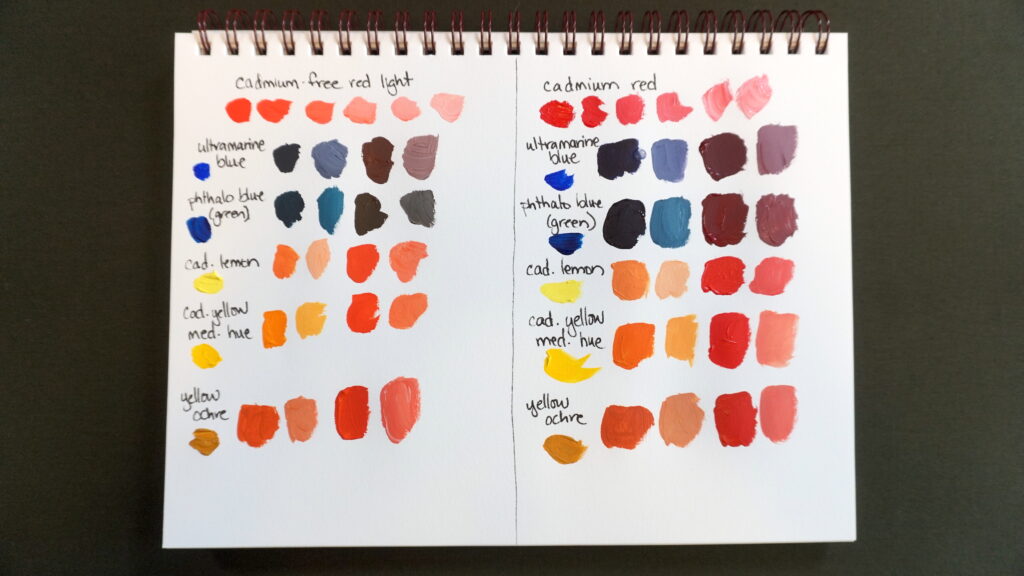 cadmium-free red light
ultramarine
blue
phthalo blue
(green)
cad. lemon
cad. yellow
med. hue
yellow
ochre
cadmium red
ultramarine
blue
phthalo blue
(green)
cad. lemon
cad. yellow
med. hue
yellow
ochre